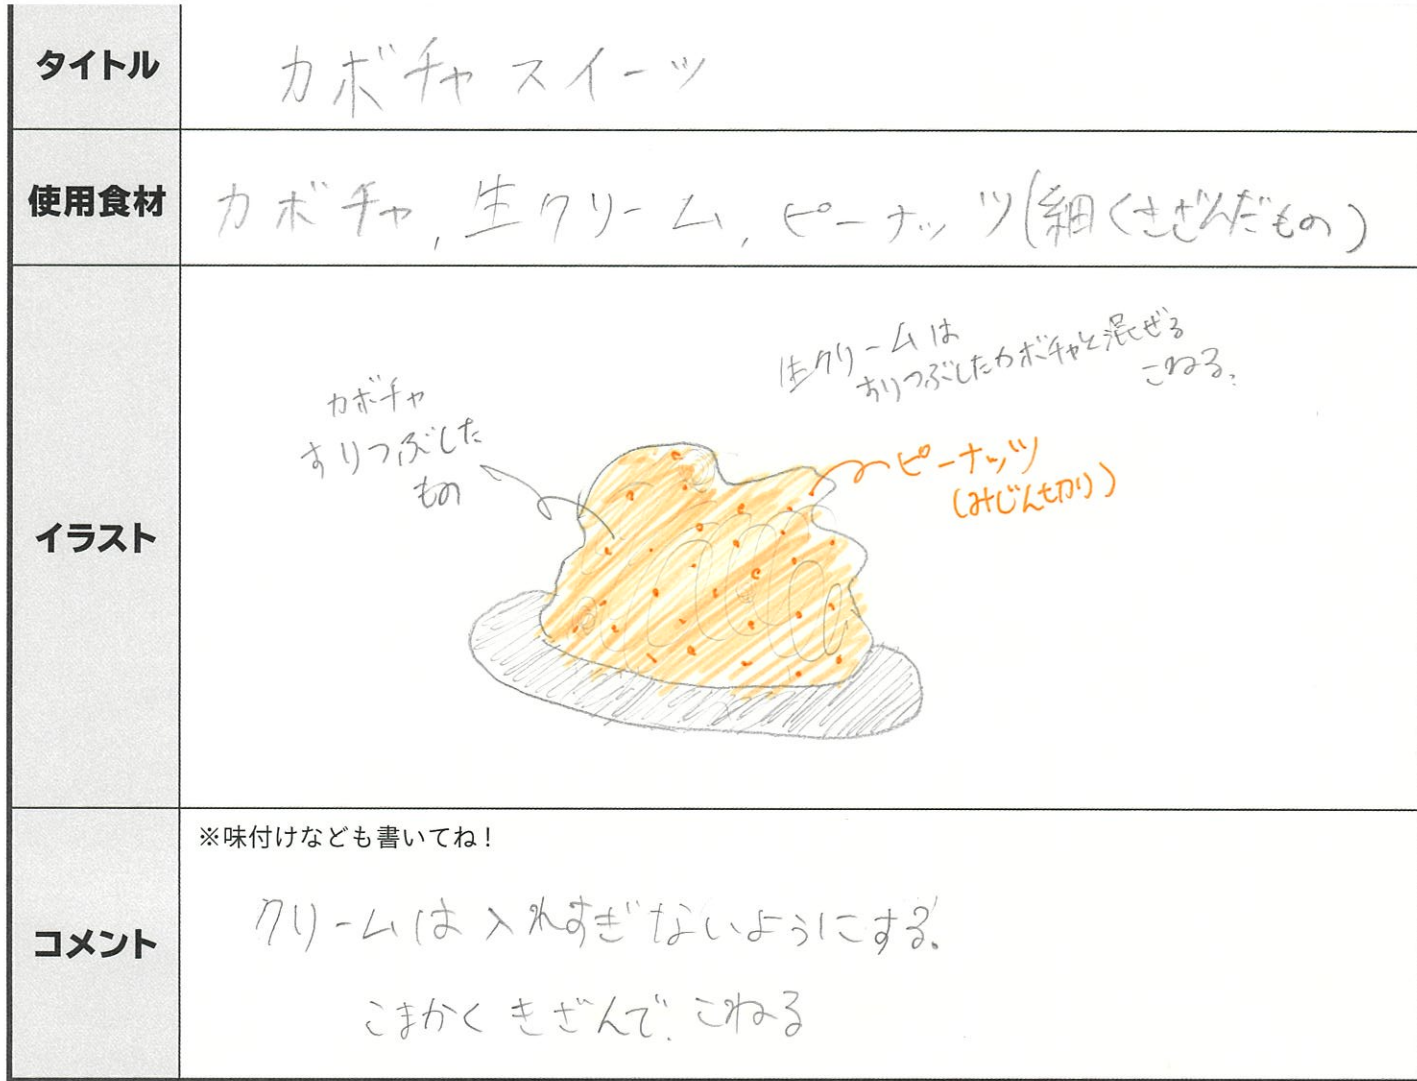 タイトル
カボチャスイーツ
使用食材
カボチャ,生クリーム,ピーナッツ(細くきざんだもの)
イラスト
生クリームは
すりつぶしたカボチャと混ぜる
こねる.
カボチャ
すりつぶした
もの
ピーナッツ
(みじん切り)
コメント
※味付けなども書いてね!
クリームは入れすぎないようにする.
こまかくきざんで.こねる